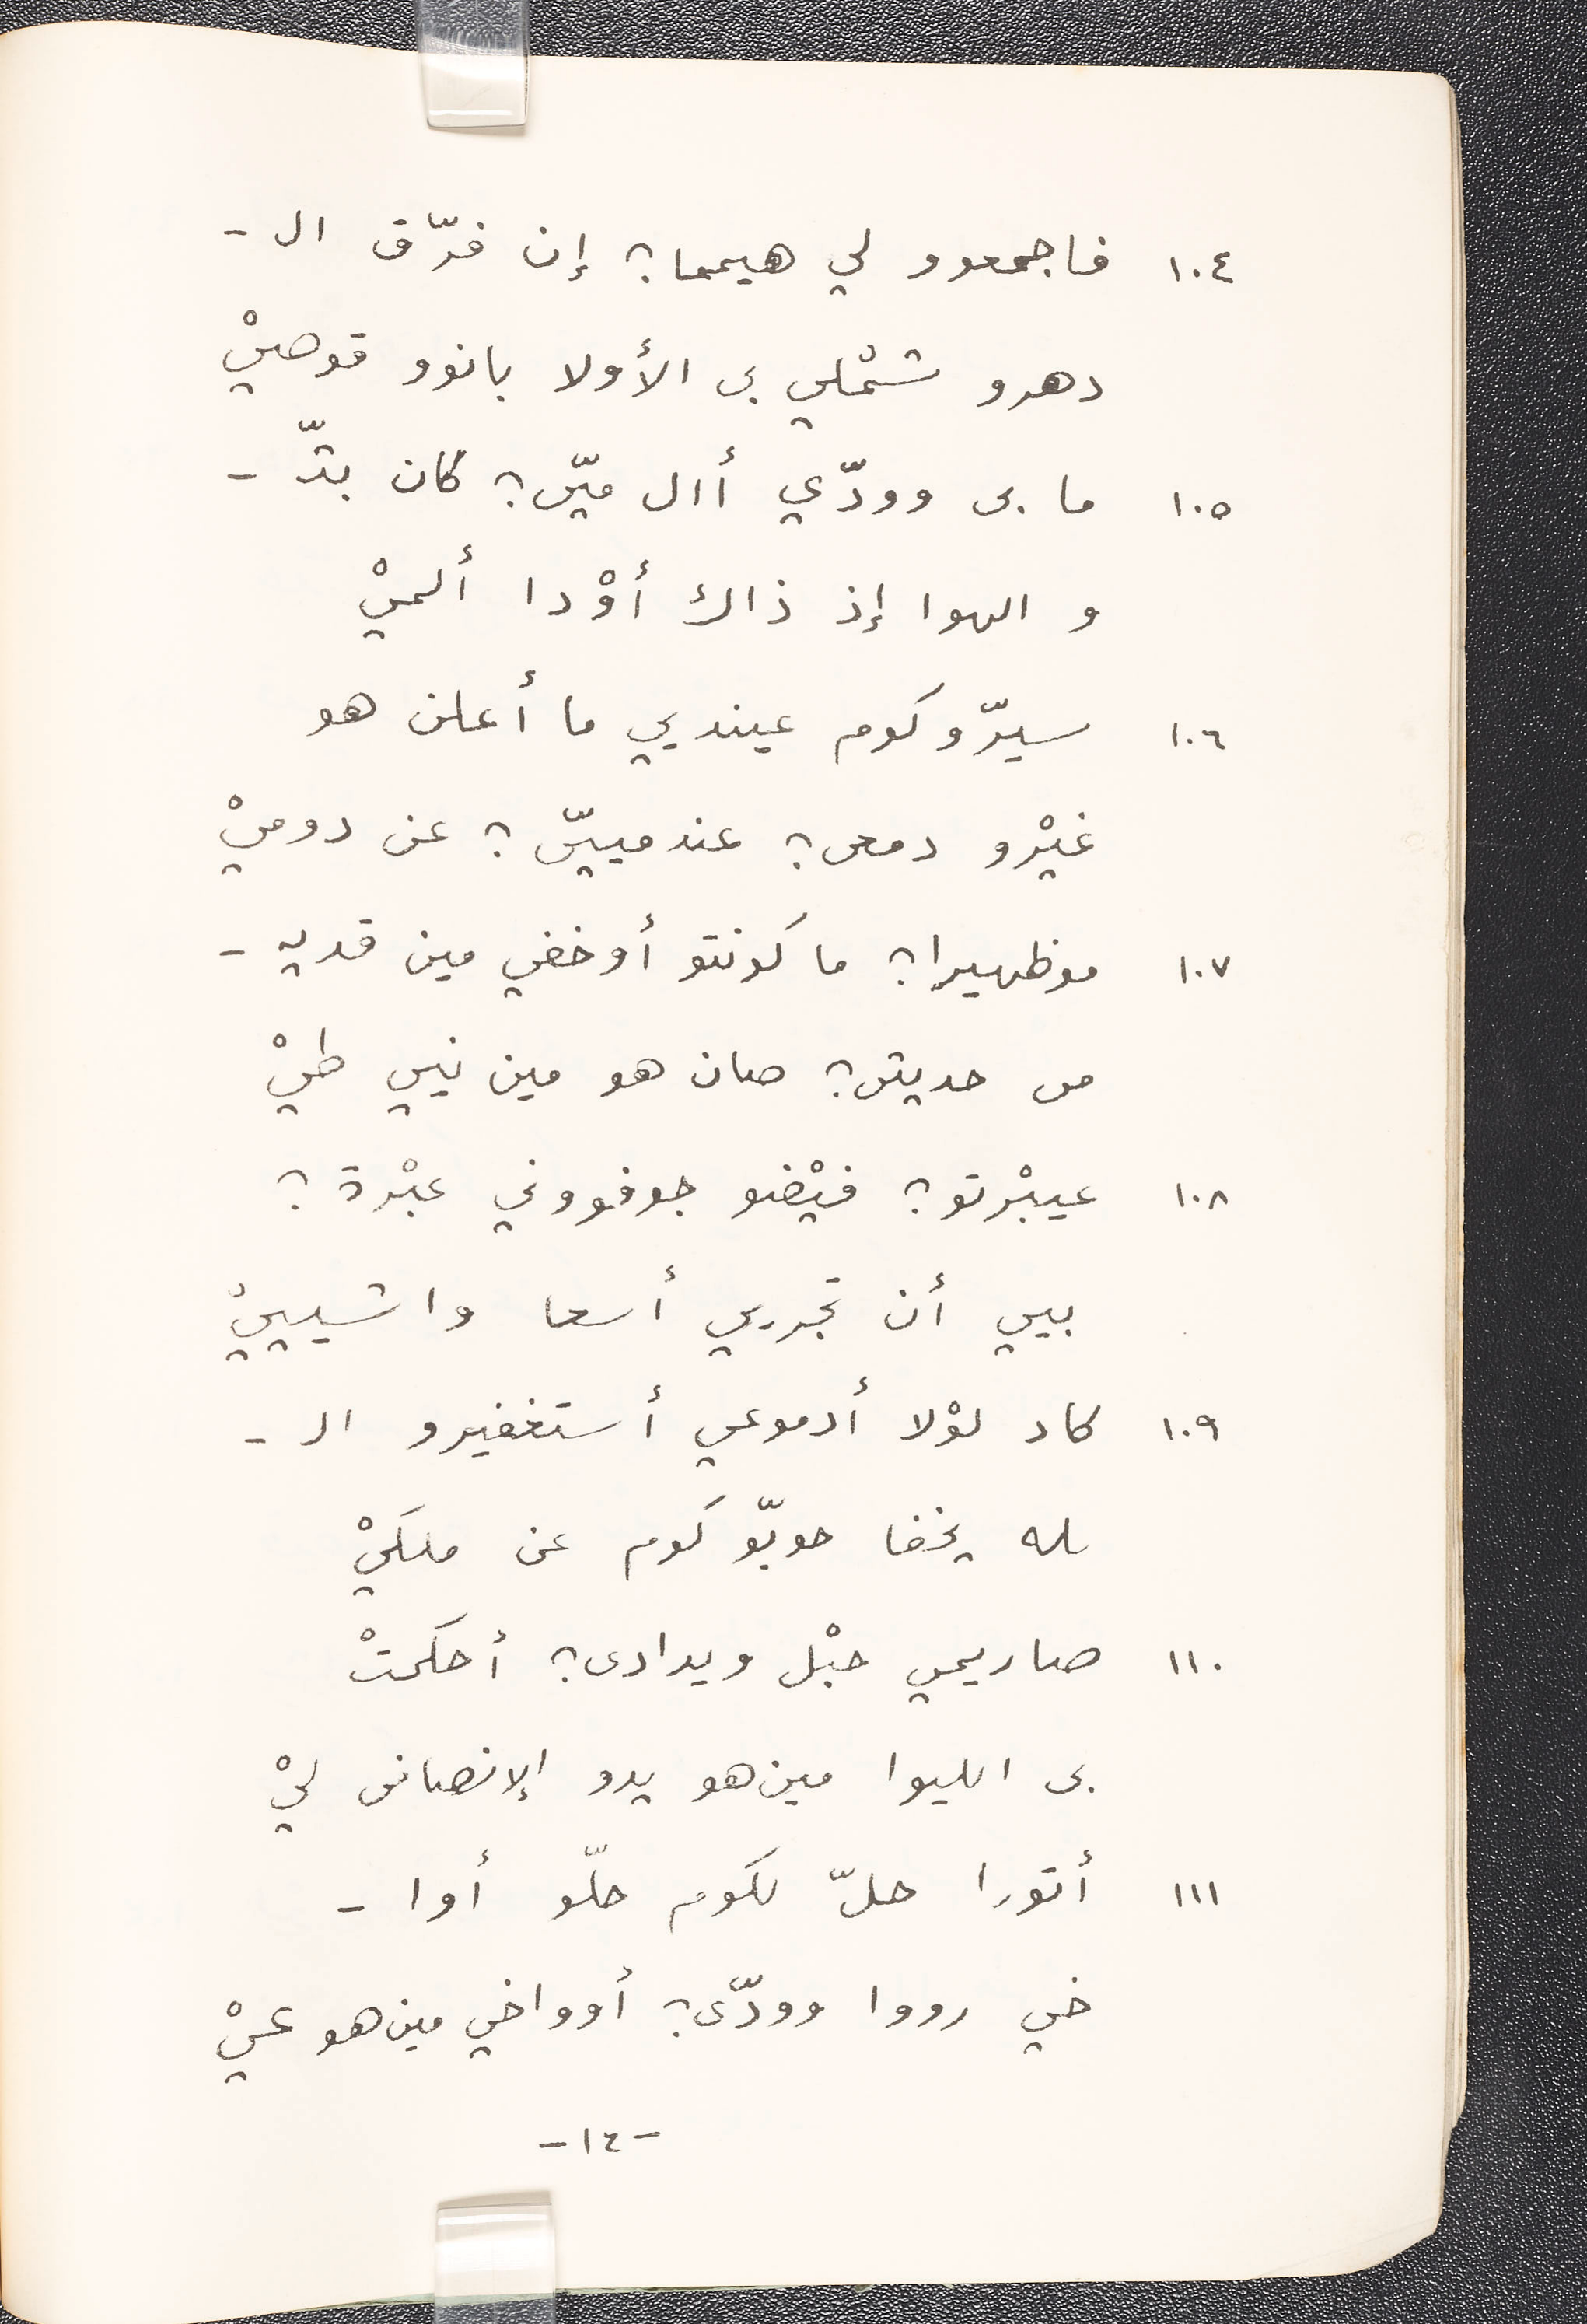 ١٠٤ فاجمعوو لي هيمما؟ إن فرّق ال -
دهرو شمْلي بى الأولا بانوو قوصيْ
١٠٥ ما بى وودّي أال ميّ؟ كان بتّ -
و الهوا إذ ذاك أوْدا ألميْ
١٠٦ سيرّوكوم عينديي ما أعلن هو
غيْرو دمعى؟ عندمييّ؟ عن دوميْ
١٠٧ موظهيرا؟ ما كونتو أوخفي مين قديـ -
مى حديثى؟ صان هو مين نيي طيْ
١٠٨ عيبْرتو؟ فيْضو جوفووني عبْرة؟
بيي أن تجريي أسعا واشيييْ
١٠٩ كاد لوْلا أدموعي أستغفيرو الـ -
ـله يخفا حوبّوكوم عن ملكيْ
١١٠ صاريمي حبْل ويدادى؟ أحكمتْ
بى الليوا مين‌هو يدو الإنصافى ليْ
١١١ أتورا حلّ لكوم حلّو أوا -
خي رووا وودّى؟ أوواخي مين‌هو عيْ
-١٤-